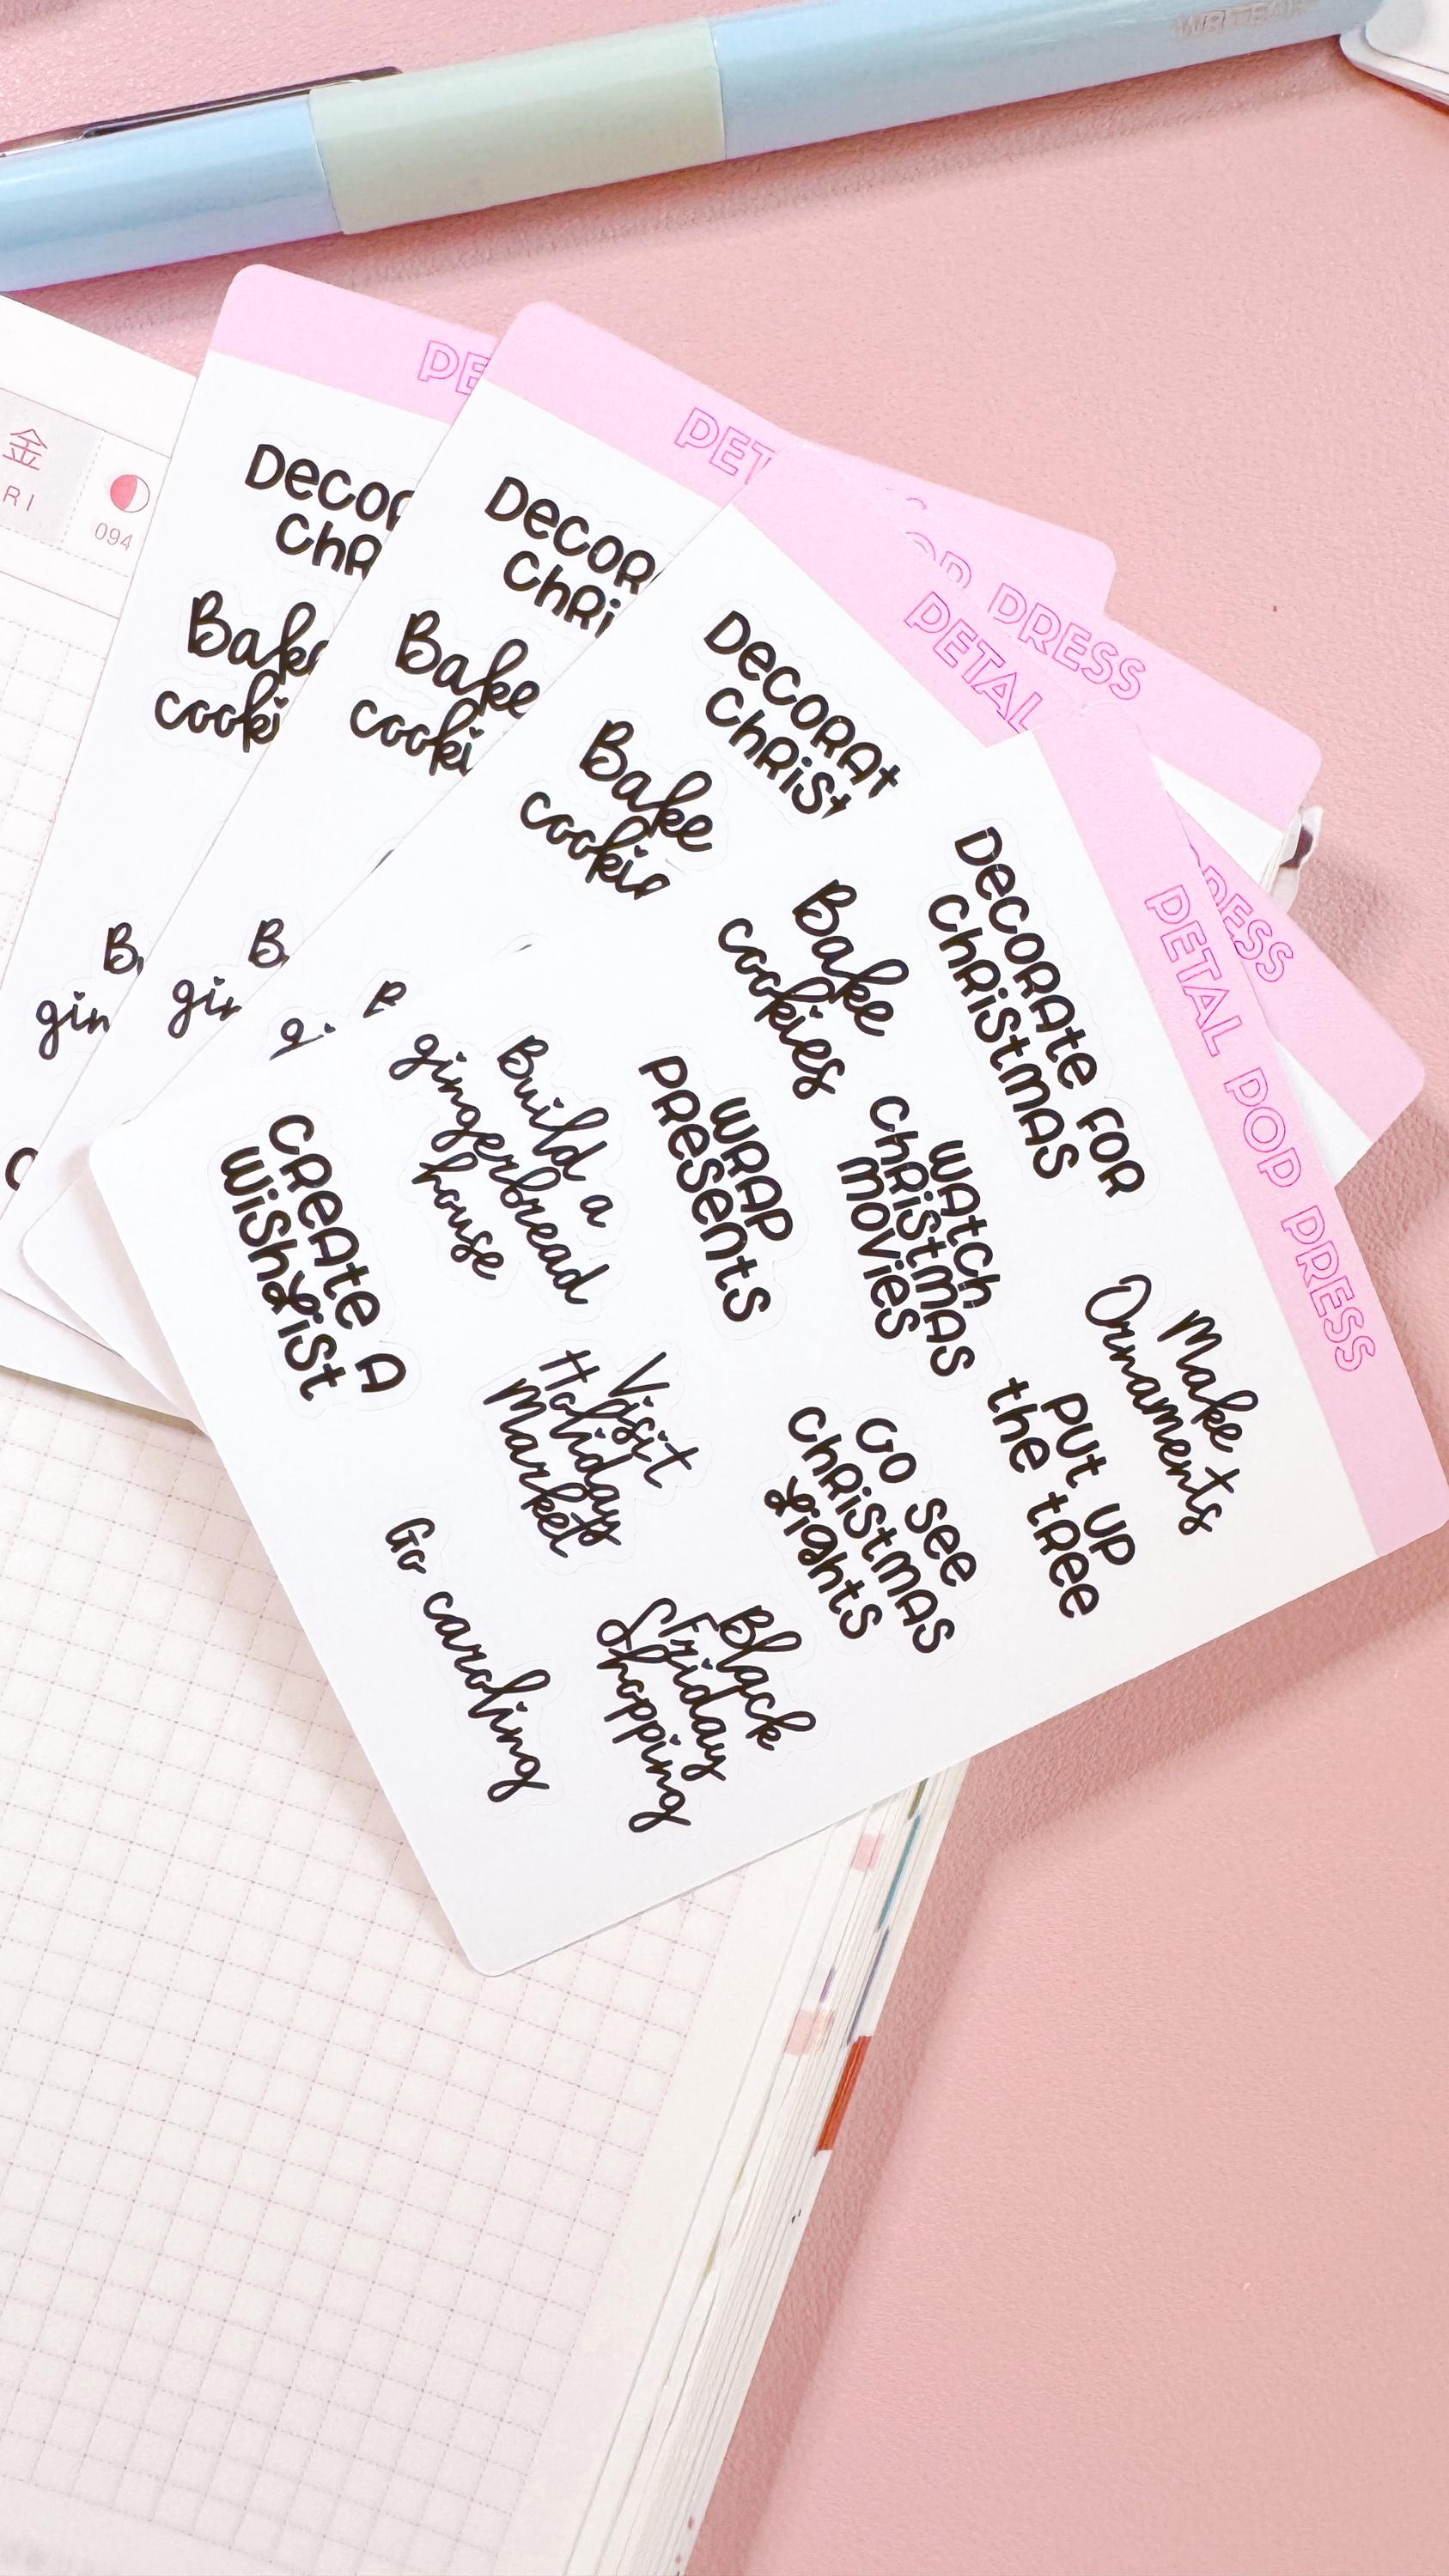 PE
PET
OP PRESS
PETAL
RESS
PETAL POP PRESS
金
RI
094
Decor
Chr
Bake
cooki
B
gin
Decor
Chri
Bake
cooki
B
gin
Decorat
Christ
Bake
cookie
Decorate for
Christmas
Bake
cookies
Make
Ornaments
Watch
Christmas
Movies
Put up
the tree
Wrap
Presents
Go see
Christmas
Lights
Build a
gingerbread
house
Visit
Holiday
Market
Black
Friday
Shopping
Create a
Wishlist
Go caroling